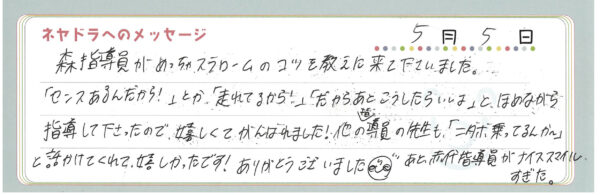 ネヤドラへのメッセージ
5月5日
森指導員がめっちゃスラロームのコツを教えに来て下さいました。
「センスあるんだから！」とか、「走れてるから！」「だからあとこうしたらいいよ」と、ほめながら
指導して下さったので、嬉しくてがんばれました！他の指導員の先生も、「ニーダボ、乗ってるんか〜」
と話かけてくれて、嬉しかったです！ありがとうございました あと、赤代指導員がナイススマイル
すぎた。